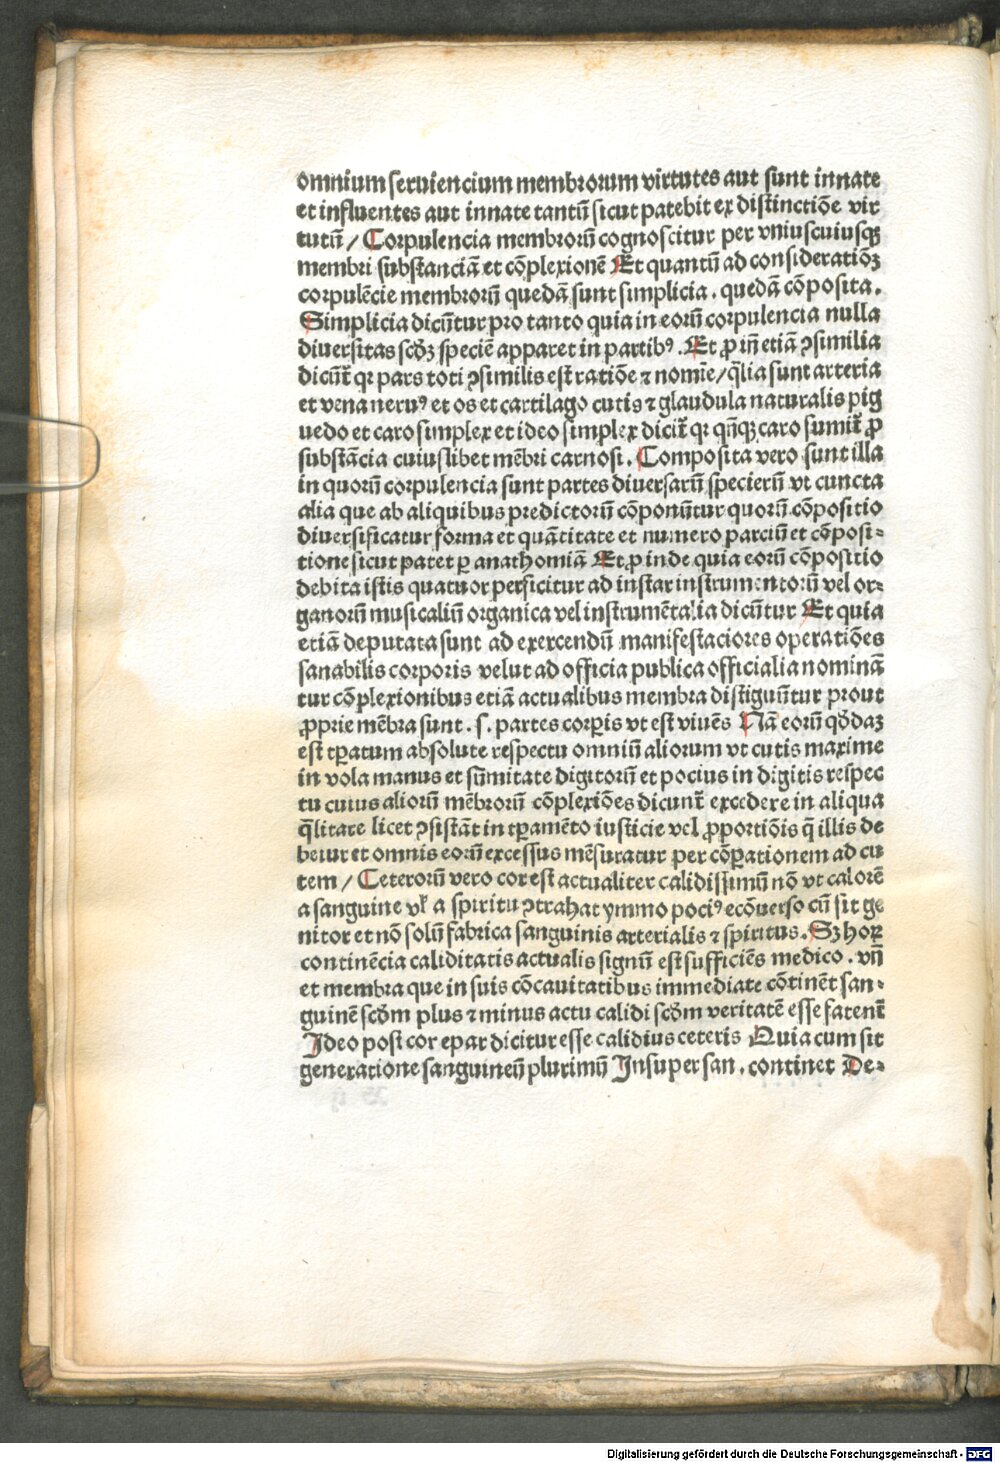 omnium seruiencium membrorum virtutes aut sunt innate
et influentes aut innate tantū sicut patebit ex distinctiōe vir
tutū / Corpulencia membrorū cognoscitur per vniuscuiusqꝫ
membri substanciā et cōplexionē Et quantū ad consideratiōꝫ
corpulēcie membrorū quedā sunt simplicia . quedā cōposita .
Simplicia dicūtur pro tanto quia in eorū corpulencia nulla
diuersitas scd̄ꝫ speciē apparet in partibꝰ . Et ꝓ in̄ etiā ꝯsimilia
dicūt̄ qꝛ pars toti ꝯsimilis est ratiōe ⁊ nomīe / q̄lia sunt arteria
et vena neruꝰ et os et cartilago cutis ⁊ glaudula naturalis pig
uedo et caro simplex et ideo simplex dicit̄ qꝛ qn̄qꝫ caro sumit̄ ꝓ
substācia cuiuslibet mēbri carnosi . Composita vero sunt illa
in quorū corpulencia sunt partes diuersarū specierū vt cuncta
alia que ab aliquibus predictorū cōponūtur quorū cōpositio
diuersificatur forma et quātitate et numero parciū et cōposi-
tione sicut patet ꝑ anathomiā Et ꝓ inde quia eorū cōpositio
debita istis quatuor perficitur ad instar instrumentorū vel or-
ganorū musicaliū organica vel instrumētalia dicūtur Et quia
etiā deputata sunt ad exercendū manifestaciores operatiōes
sanabilis corporis velut ad officia publica officialia nominā
tur cōplexionibus etiā actualibus membra distīguūtur prout
ꝓprie mēbra sunt . s . partes corꝑis vt est viuēs Nā eorū qd̄daꝫ
est tꝑatum absolute respectu omniū aliorum vt cutis maxime
in vola manus et sūmitate digitorū et pocius in digitis respec
tu cuius aliorū mēbrorū cōplexiōes dicunt̄ excedere in aliqua
q̄litate licet ꝯsistāt in tꝑamēto iusticie vel ꝓportiōis q̄ illis de
betur et omnis eorū excessus mēsuratur per cōꝑationem ad cu
tem / Ceterorū vero cor est actualiter calidissimū nō vt calorē
a sanguine vl̄ a spiritu ꝯtrahat ymmo pociꝰ ecōuerso cū sit ge
nitor et nō solū fabrica sanguinis arterialis ⁊ spiritus . Sꝫ hoꝝ
continēcia caliditatis actualis signū est sufficiēs medico . vn̄
et membra que in suis cōcauitatibus immediate cōtinēt san-
guinē scd̄m plus ⁊ minus actu calidi scd̄m veritatē esse fatent̄
Ideo post cor epar dicitur esse calidius ceteris Quia cum sit
generatione sanguineū plurimū Insuper san . continet De-
Digitalisierung gefördert durch die Deutsche Forschungsgemeinschaft - DFG